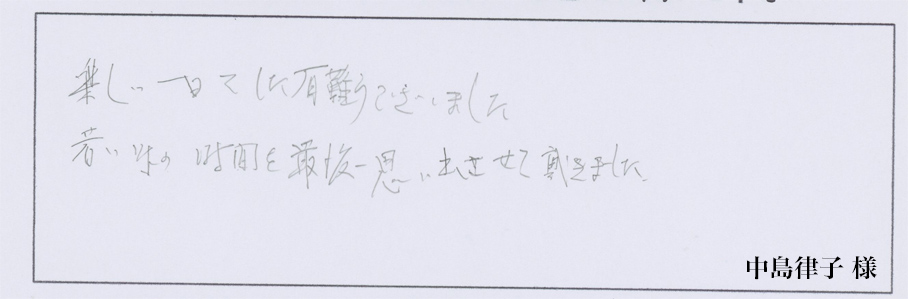 楽しい一日でした有難うございました
若い時の時間を最後に思い出させて戴きました
中島律子 様